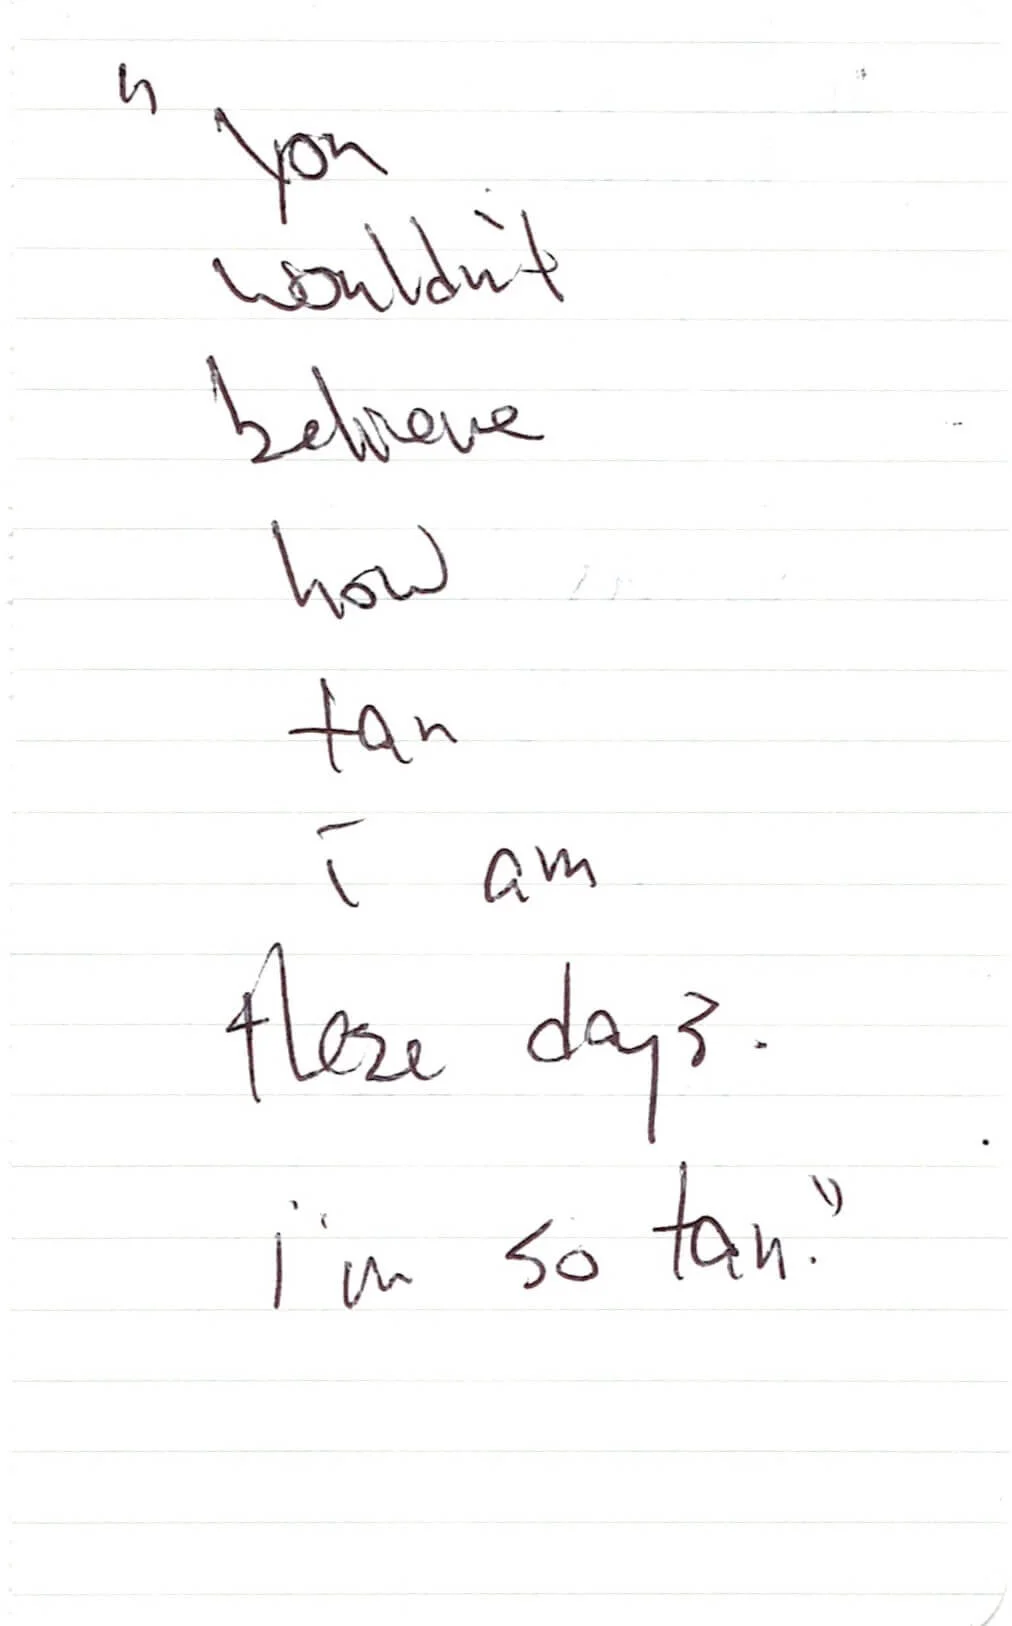 "you
wouldn't
believe
how
tan
i am
these days.
i'm so tan."